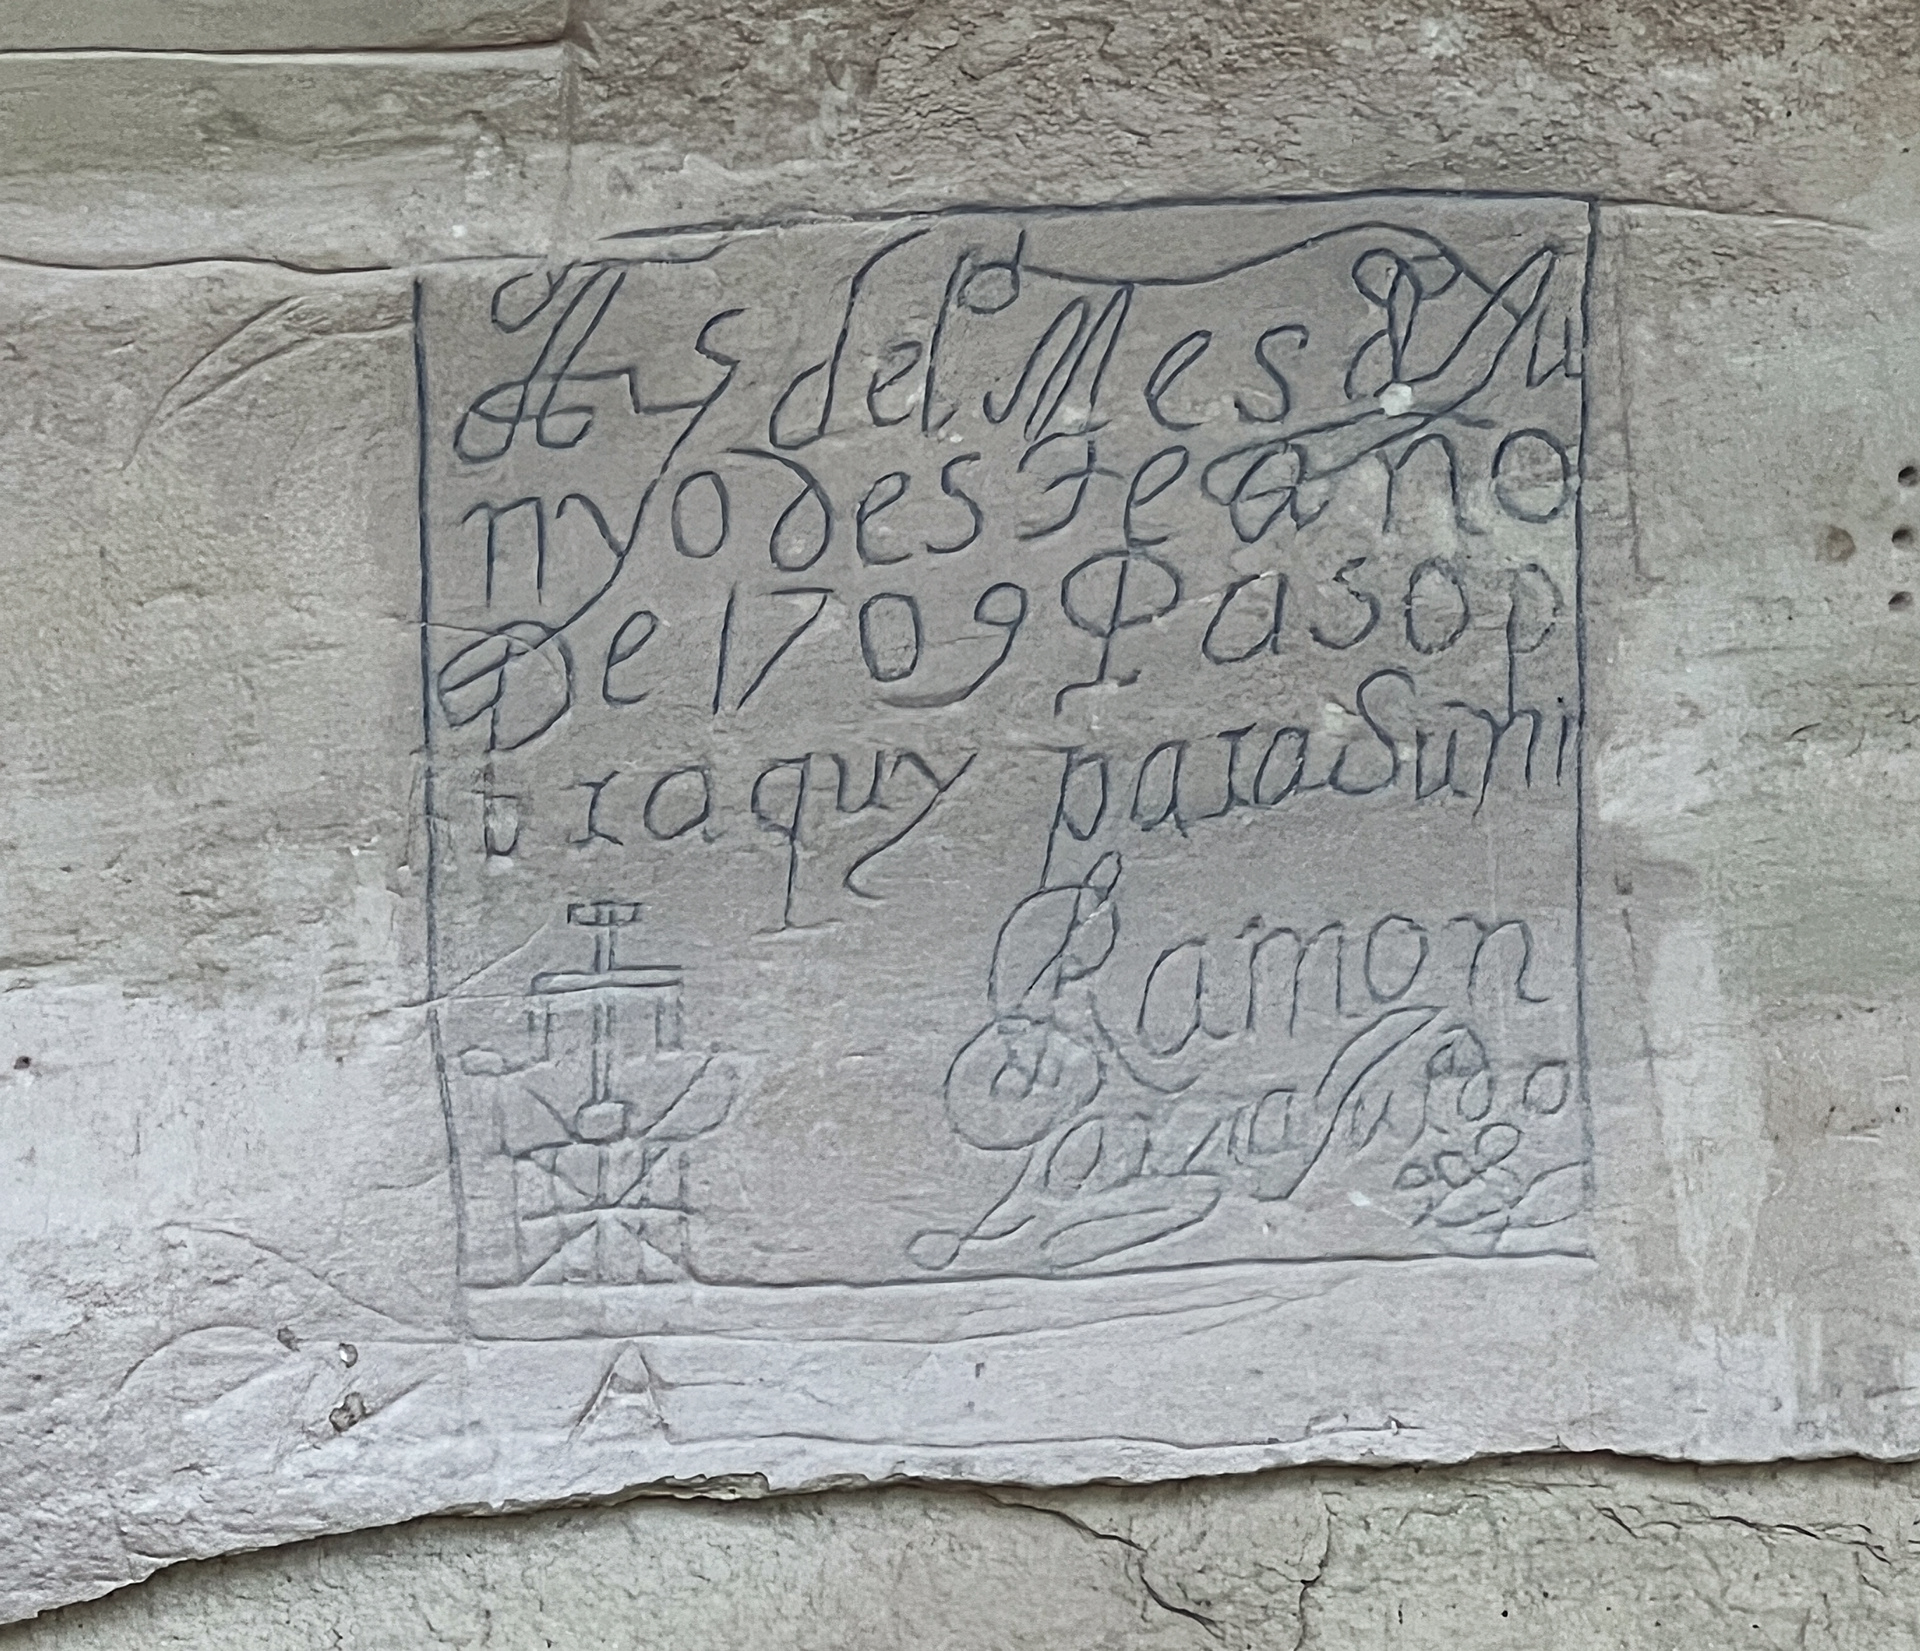 A 5 del Mes d Ju
nyo deste año
De 1709 Paso p
r aquy para Suñi
Ramon
Garsia Jurado
A